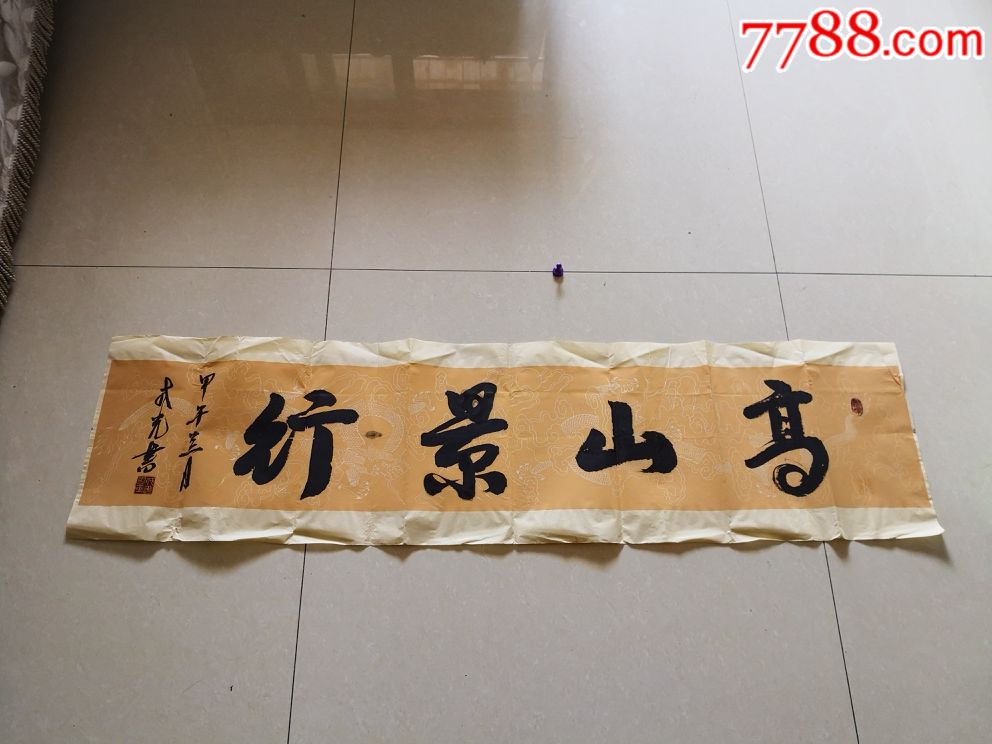 7788.com
高山景行
甲午兰月
光書